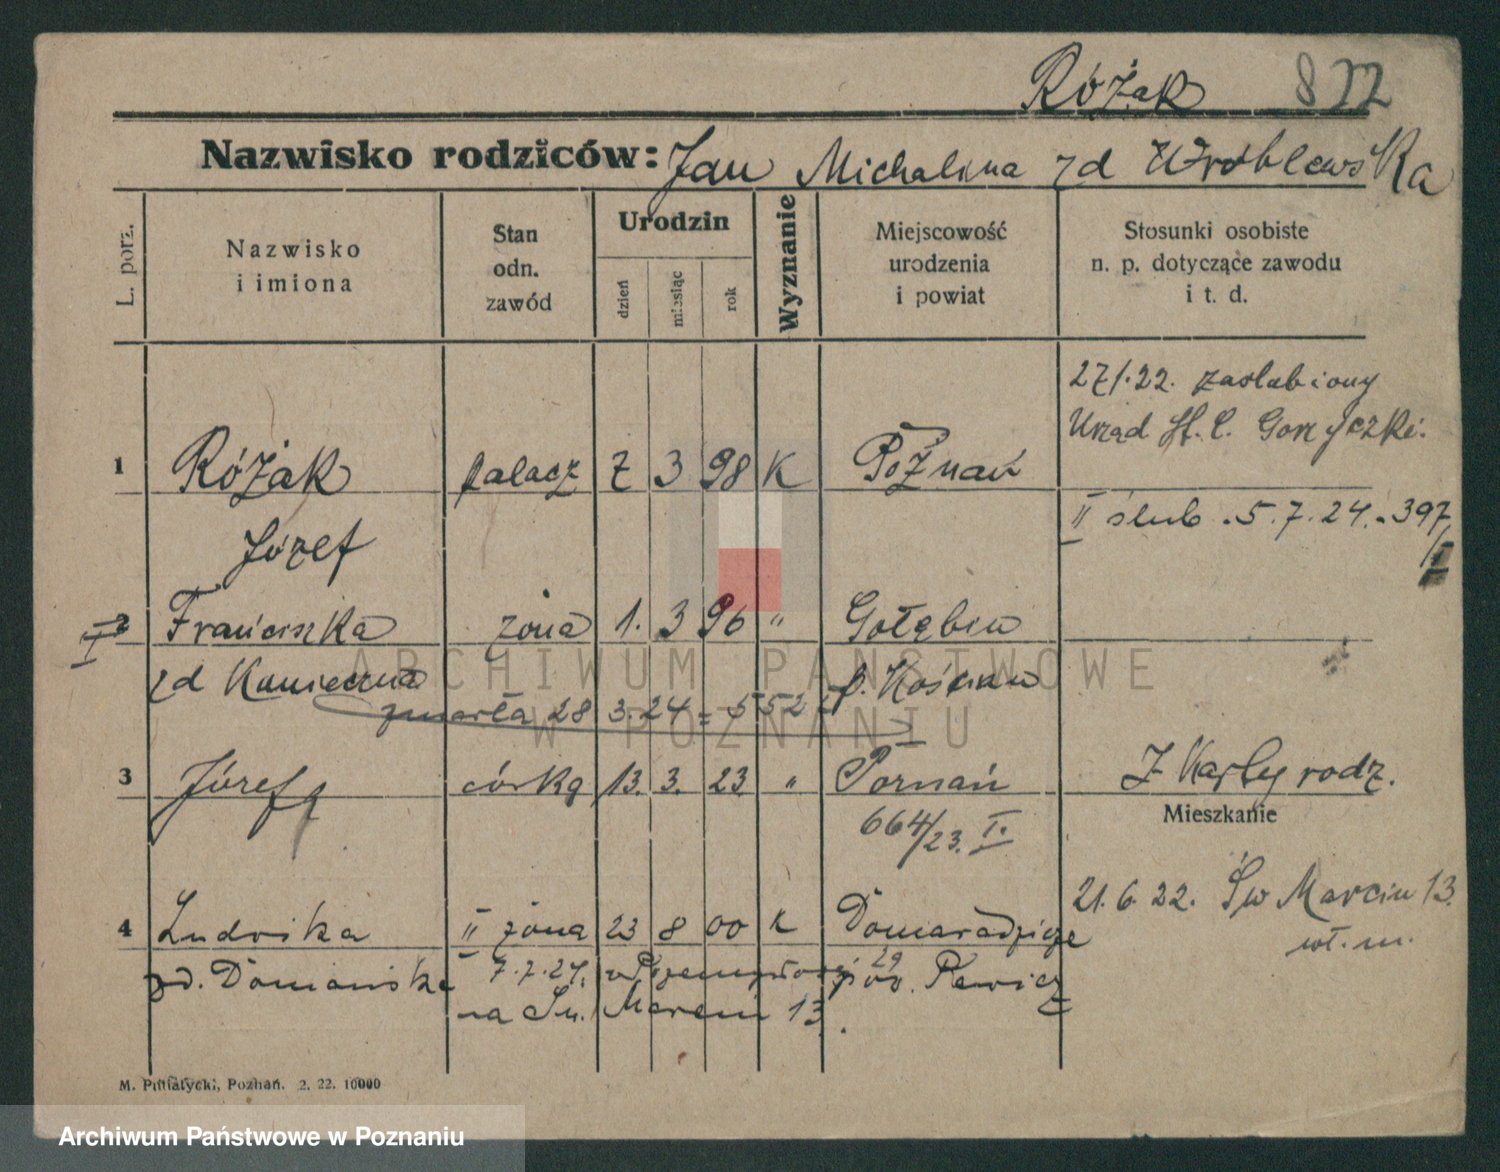 Różak 822
Nazwisko rodziców: Jan Michalina zd Wróblewska
L. porz.
Nazwisko i imiona
Stan odn. zawód
Urodzin
dzień
miesiąc
rok
Wyznanie
Miejscowość urodzenia i powiat
Stosunki osobiste n. p. dotyczące zawodu i t. d.
27/1.22. zaślubiony
Urząd st. c. Gorzyczki.
1 Różak palacz 7 3 98 K Poznań
II ślub 5.7.24. 397/I
Józef
I 2 Franciszka żona 1. 3 96 " Gołębin
zd Konieczna p. Kościan
zmarła 28 3.24 = 552
3 Józefa córka 13. 3. 23 " Poznań Z Karty rodz.
664/23. I.
Mieszkanie
21.6 22. Św Marcin 13.
wł. m.
4 Ludwika II żona 23 8 00 K Domaradzice
zd. Domańska 7.7.24. pow. Rawicz
na Św. Marcin 13.
M. Putiatycki, Poznań. 2. 22. 10000
ARCHIWUM PAŃSTWOWE
W POZNANIU
Archiwum Państwowe w Poznaniu